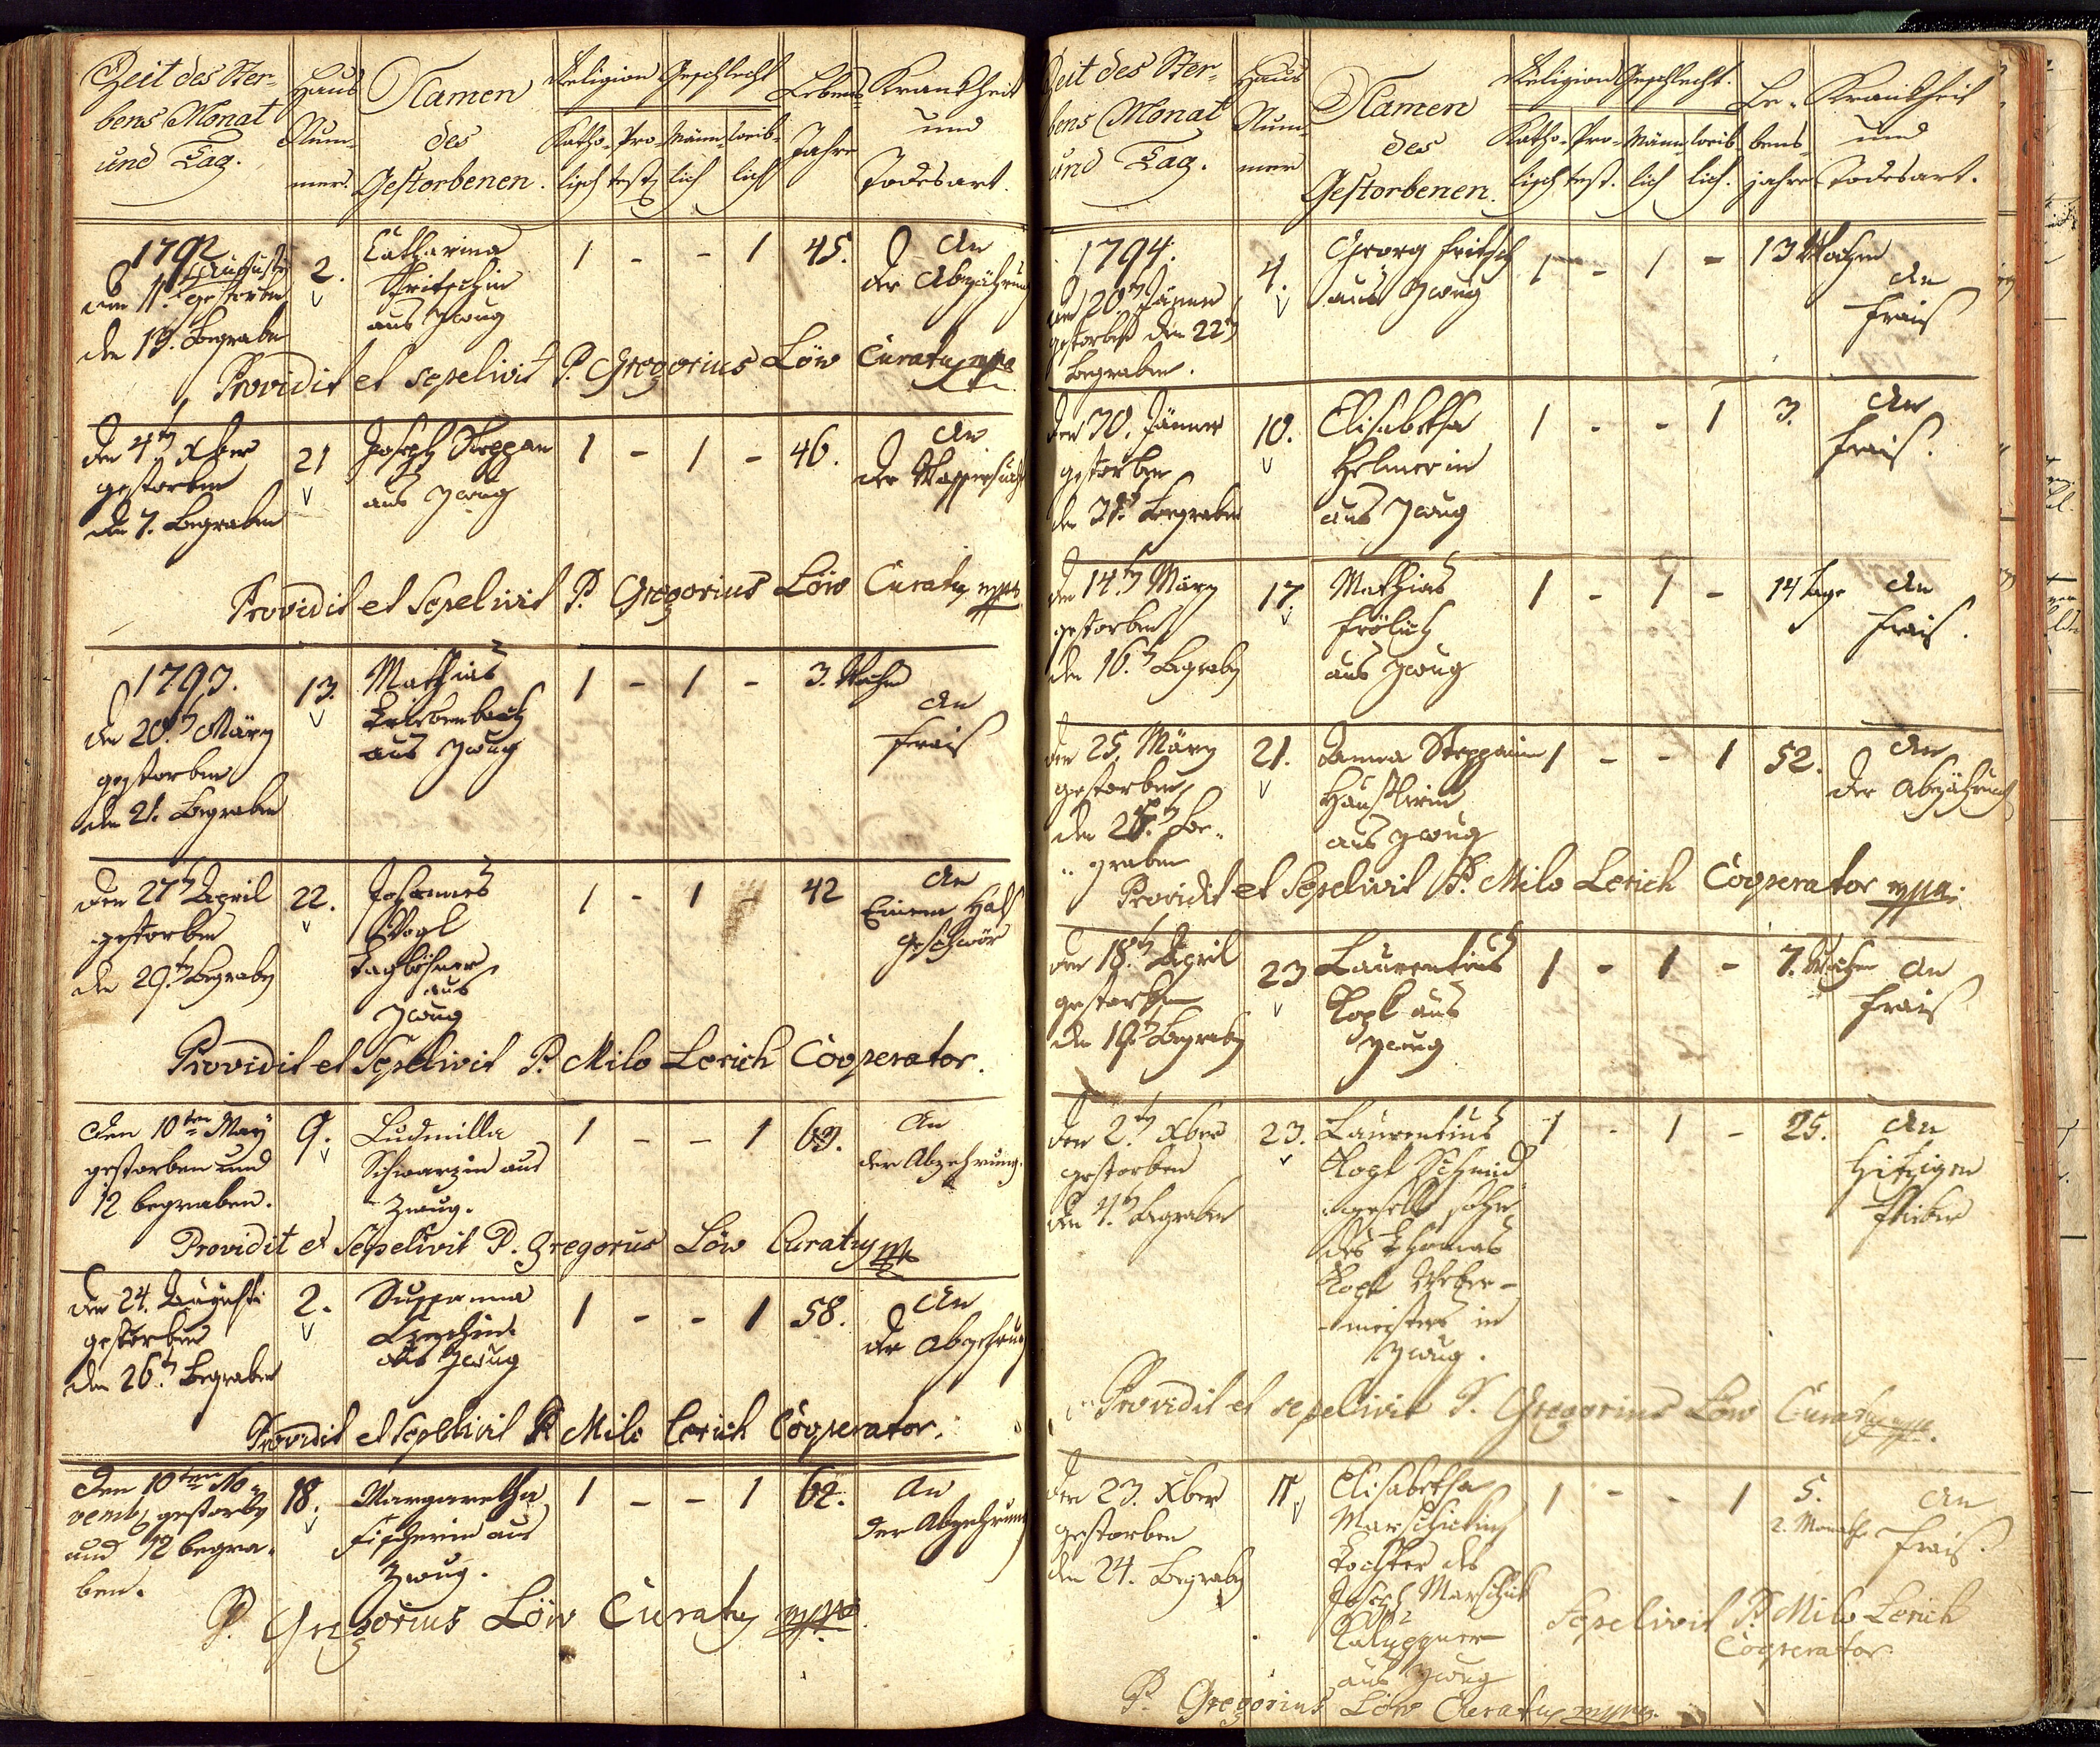 Zeit des Ster-
bens Monat
und Tag.
Haus
Num-
mer.
Namen
des
Gestorbenen.
Religion
Katho- Pro-
lisch test.
Geschlecht
Männ- weib-
lich lich
Lebens-
Jahre
Krankheit
und
Todesart.
1792
den 11. Augusti
gestorben
den 13. Begraben
2.
Catharina
Fritschin
aus Zwug
1 - - 1 45.
An
der Abzährung
Providit et sepelivit P. Gregorius Löw Curatus mpa
den 4t Xber
gestorben
den 7. Begraben
21
Joseph Steppan
aus Zwug
1 - 1 - 46.
An
der Wassersucht
Providit et Sepelivit P. Gregorius Löw Curatus mpa
1793.
den 20t März
gestorben
den 21. Begraben
13.
Mathias
aus Zwug
1 - 1 - 3. Wochen
An
Frais
Den 27t April
gestorben
den 29t Begraben
22.
Johannes
Vogl
Taglöhner
aus
Zwug
1 - 1 - 42
An
Einem Hals
geschwör
Providit et Sepelivit P. Milo Lerich Cooperator.
Den 10ten May
gestorben und
12 begraben.
9.
Ludmilla
Schwarzin aus
Zwug.
1 - - 1 63.
An
der Abzehrung.
Providit et Sepelivit P. Gregorius Löw Curatus mp
Den 24. Augusti
gestorben
den 26t Begraben
2.
Sussanna
aus Zwug
1 - - 1 58.
An
der Abzehrung
Providit et Sepelivit P. Milo Lerich Cooperator.
Den 10ten No-
vemb gestorben
und 12 begra-
ben.
18.
Margaretha
Fischerin aus
Zwug.
1 - - 1 62.
An
der Abzehrung
P. Gregorius Löw Curatus mpa
Zeit des Ster-
bens Monat
und Tag.
Haus
Num-
mer
Namen
des
Gestorbenen.
Religion
Katho- Pro-
lisch test.
Geschlecht.
Männ- weib-
lich lich.
Le-
bens-
jahre
Krankheit
und
Todesart.
1794.
den 20t Jänner
gestorben den 22t
Begraben.
4.
Georg Fritsch
aus Zwug
1 - 1 - 13 Wochen
An
Frais
Den 30. Jänner
gestorben
den 31. Begraben
10.
Elisabetha
Helmerin
aus Zwug
1 - - 1 3.
An
Frais.
Den 14t März
gestorben
den 16t Begraben
17.
Mathias
Frölich
aus Zwug
1 - 1 - 14 Tage
An
Frais.
den 25 März
gestorben
den Be-
graben
21.
Anna Steppanin
Häuslerin
aus Zwug
1 - - 1 52.
An
der Abzährung
Providit et Sepelivit P. Milo Lerich Cooperator mpa.
Den 18t April
gestorben
den 19t Begraben
23
Laurentius
Kopl aus
Zwug
1 - 1 - 7. Wochen
An
Frais
Den 2t Xber
gestorben
den 4t Begraben
23.
Laurentius
Kopl Schmid-
gesell Sohn
des Thomas
Kopl Weber-
meisters in
Zwug.
1 - 1 - 25.
An
Hitzigen
Fieber
Providit et sepelivit P. Gregorius Löw Curatus mpa.
Den 23. Xber
gestorben
den 24. Begraben
Elisabetha
Marschickin
Tochter des
Joseph Marschik
aus Zwug
1 - - 1 5.
2. Monathe
An
Frais.
Sepelivit P. Milo Lerich
Cooperator
P. Gregorius Löw Curatus mpa.